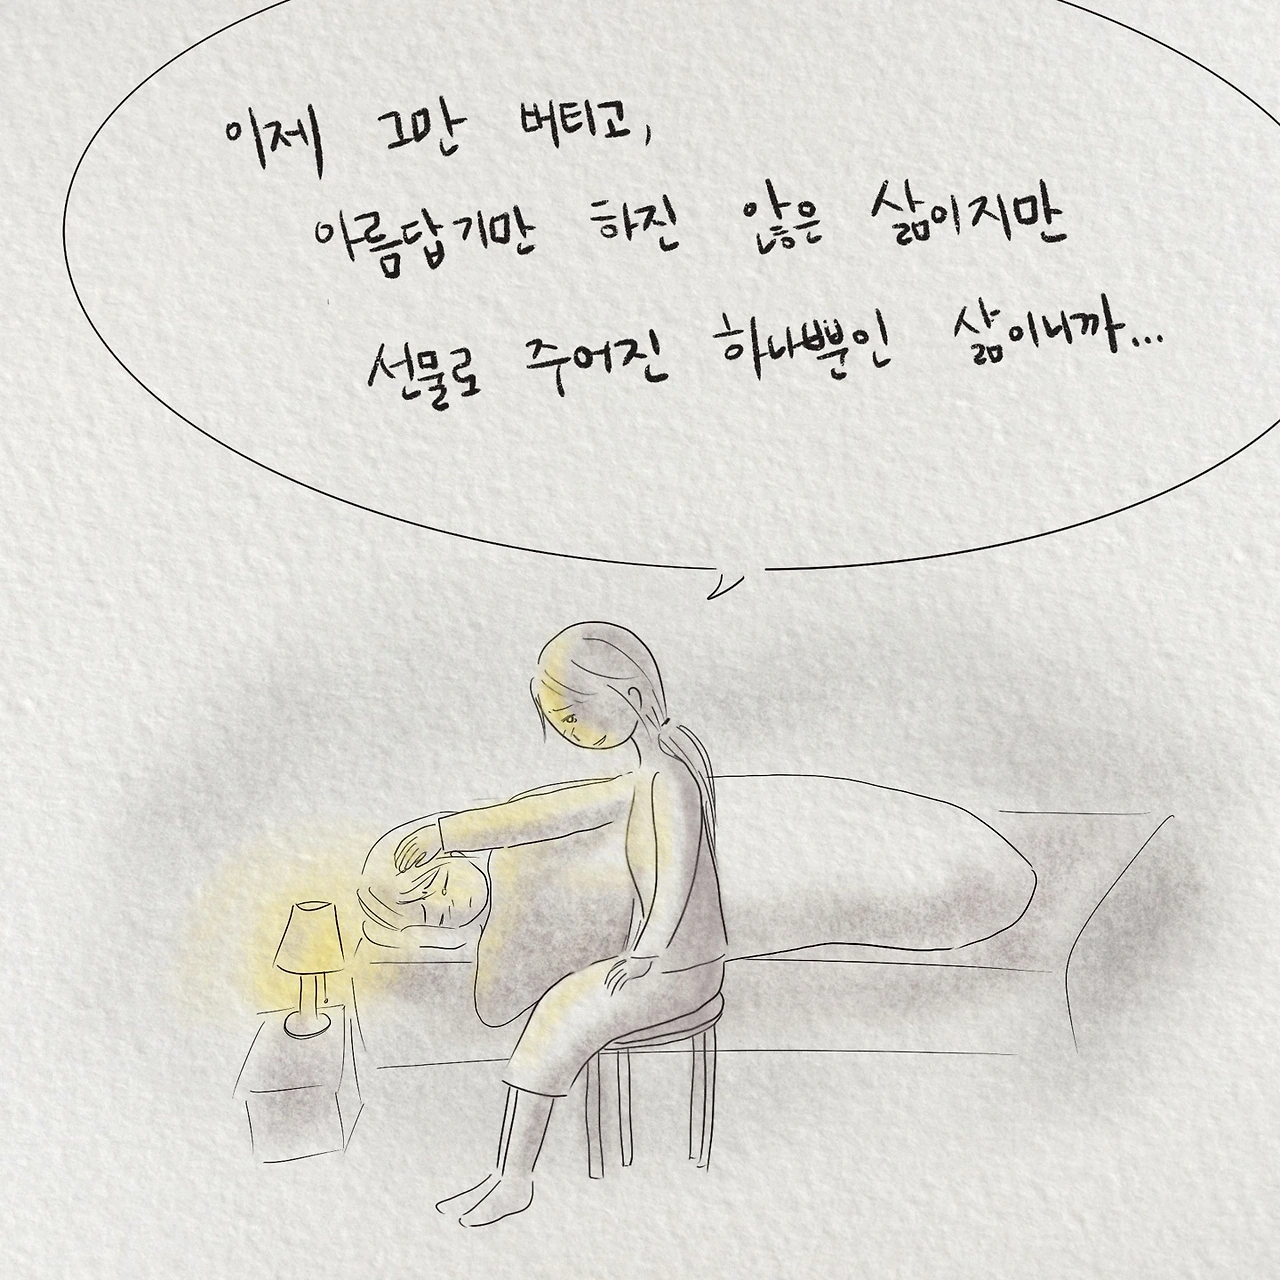 이제 그만 버티고,
아름답기만 하진 않은 삶이지만
선물로 주어진 하나뿐인 삶이니까...